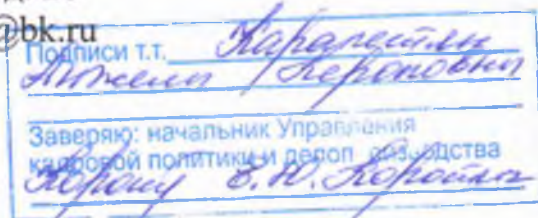 @bk.ru
Подписи т.т. Карапетян
Анжелы Кероповны
Заверяю: начальник Управления
кадровой политики и делоп оизводства
Е.Ю. Коротких